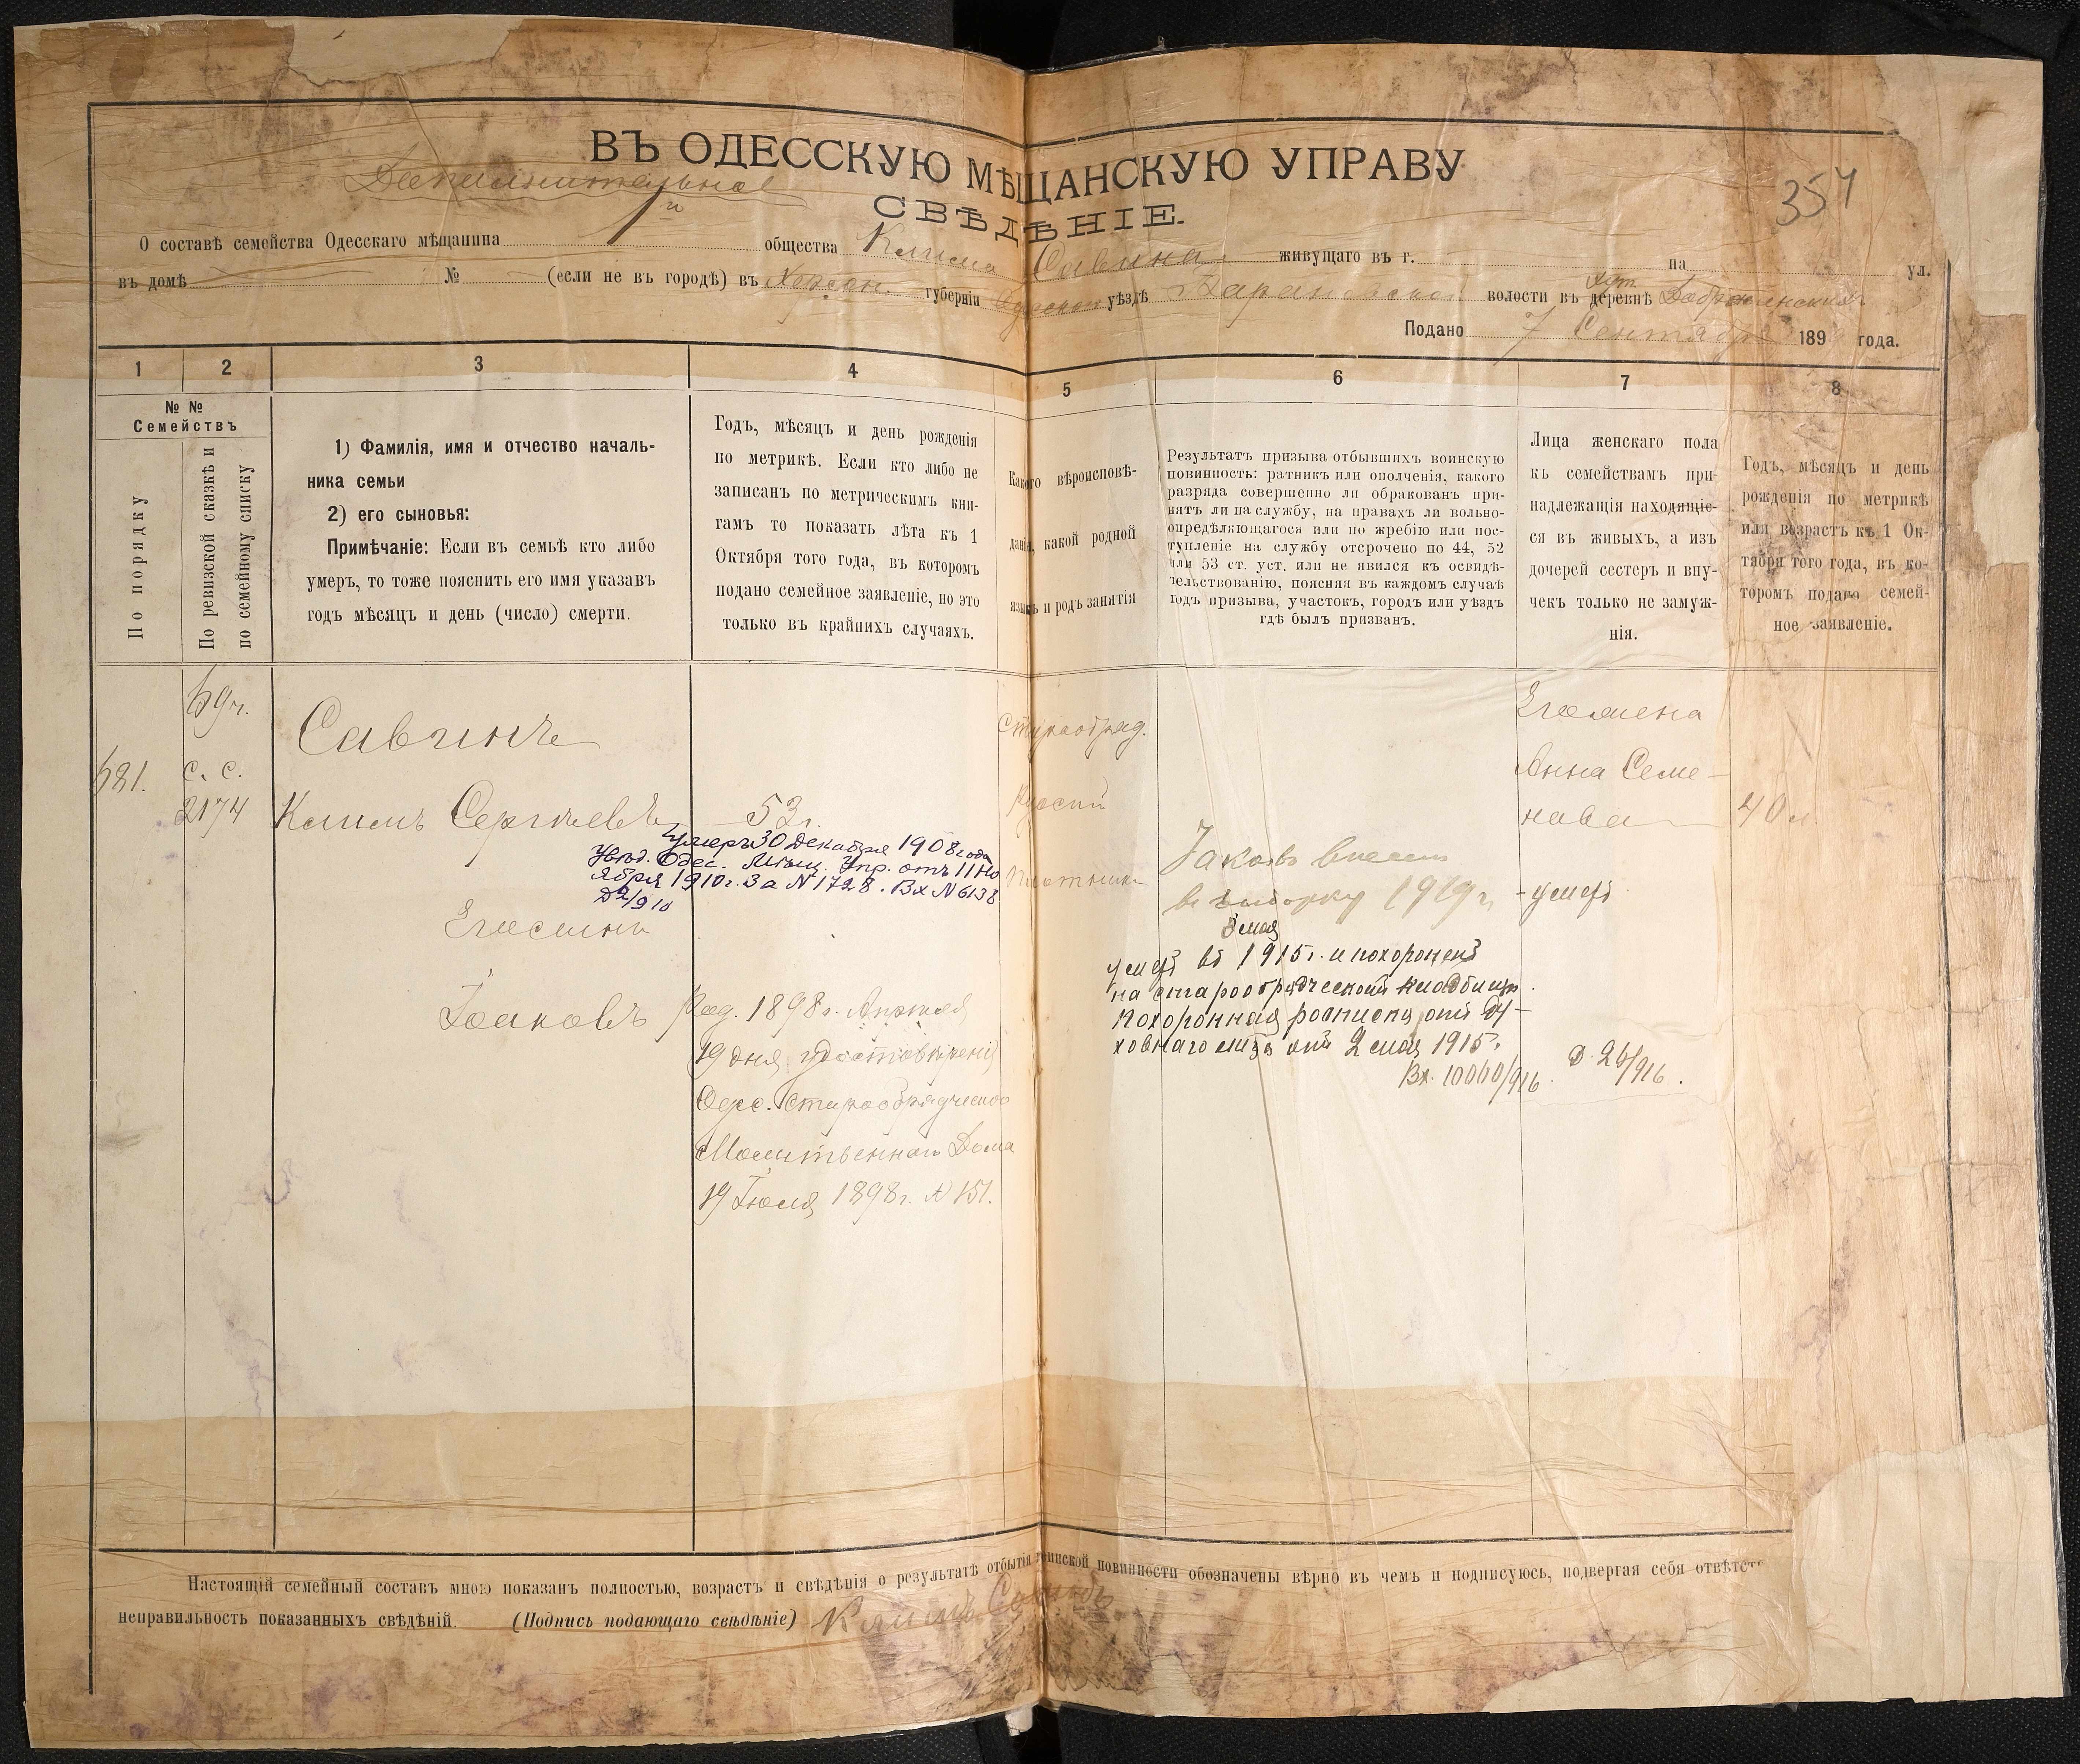 ВЪ ОДЕССКУЮ МѢЩАНСКУЮ УПРАВУ
Дополнительное
СВѢДѢНІЕ.
354
О составѣ семейства Одесскаго мѣщанина 1го общества Клима Савина живущаго въ г. на ул.
въ домѣ № (если не въ городѣ) въ Херсон. губерніи Одесском уѣздѣ волости въ деревнѣ
хут.
Подано 7 Сентября 189 года.
1 2 3 4 5 6 7 8
№ № Семействъ
По порядку
По ревизской сказкѣ и
по семейному списку
1) Фамилія, имя и отчество началь-
ника семьи
2) его сыновья:
Примѣчаніе: Если въ семьѣ кто либо
умеръ, то тоже пояснить его имя указавъ
годъ мѣсяцъ и день (число) смерти.
Годъ, мѣсяцъ и день рожденія
по метрикѣ. Если кто либо не
записанъ по метрическимъ кни-
гамъ то показать лѣта къ 1
Октября того года, въ которомъ
подано семейное заявленіе, но это
только въ крайнихъ случаяхъ.
Какого вѣроисповѣ-
данія, какой родной
языкъ и родъ занятія
Результатъ призыва отбывшихъ воинскую
повинность: ратникъ или ополченія, какого
разряда совершенно ли обракованъ при-
нятъ ли на службу, на правахъ ли вольно-
опредѣляющагося или по жребію или пос-
тупленіе на службу отсрочено по 44, 52
или 53 ст. уст. или не явился къ освидѣ-
тельствованію, поясняя въ каждомъ случаѣ
годъ призыва, участокъ, городъ или уѣздъ
гдѣ былъ призванъ.
Лица женскаго пола
къ семействамъ при-
надлежащія находящіе-
ся въ живыхъ, а изъ
дочерей сестеръ и вну-
чекъ только не замуж-
нія.
Годъ, мѣсяцъ и день
рожденія по метрикѣ
или возрастъ къ 1 Ок-
тября того года, въ ко-
торомъ подано семей-
ное заявленіе.
Савинъ
Старообряд.
Его жена
681.
с. с.
Анна Семе-
2174
Климъ Сергѣевъ
53 г.
Русскій
нова
40 л.
Умеръ 30 декабря 1908 года
Увѣд. Одес. Мѣщ. Упр. отъ 11 Но
ября 1910 г. За N 1728. Вх N 6138
Плотникъ
Іаковъ внесен
въ выборку 1919 г.
- умеръ
Его сынъ
3 мая
умеръ въ 1915 г. и похороненъ
на старообрядческомъ кладбищѣ.
Похоронная росписка отъ Ду-
ховнаго лица отъ 2 мая 1915 г.
Вх. 10060/916. д. 26/916.
Іоаковъ
Род. 1898 г. Апрѣля
19 дня, удостовѣреніе
Одес. Старообрядческаго
Молитвеннаго Дома
19 Іюля 1898 г. N 151.
Настоящій семейный составъ мною показанъ полностью, возрастъ и свѣдѣнія о результатѣ отбытія воинской повинности обозначены вѣрно въ чемъ и подписуюсь, подвергая себя отвѣтст
неправильность показанныхъ свѣдѣній. (Подпись подающаго свѣдѣніе) Климъ Савинъ